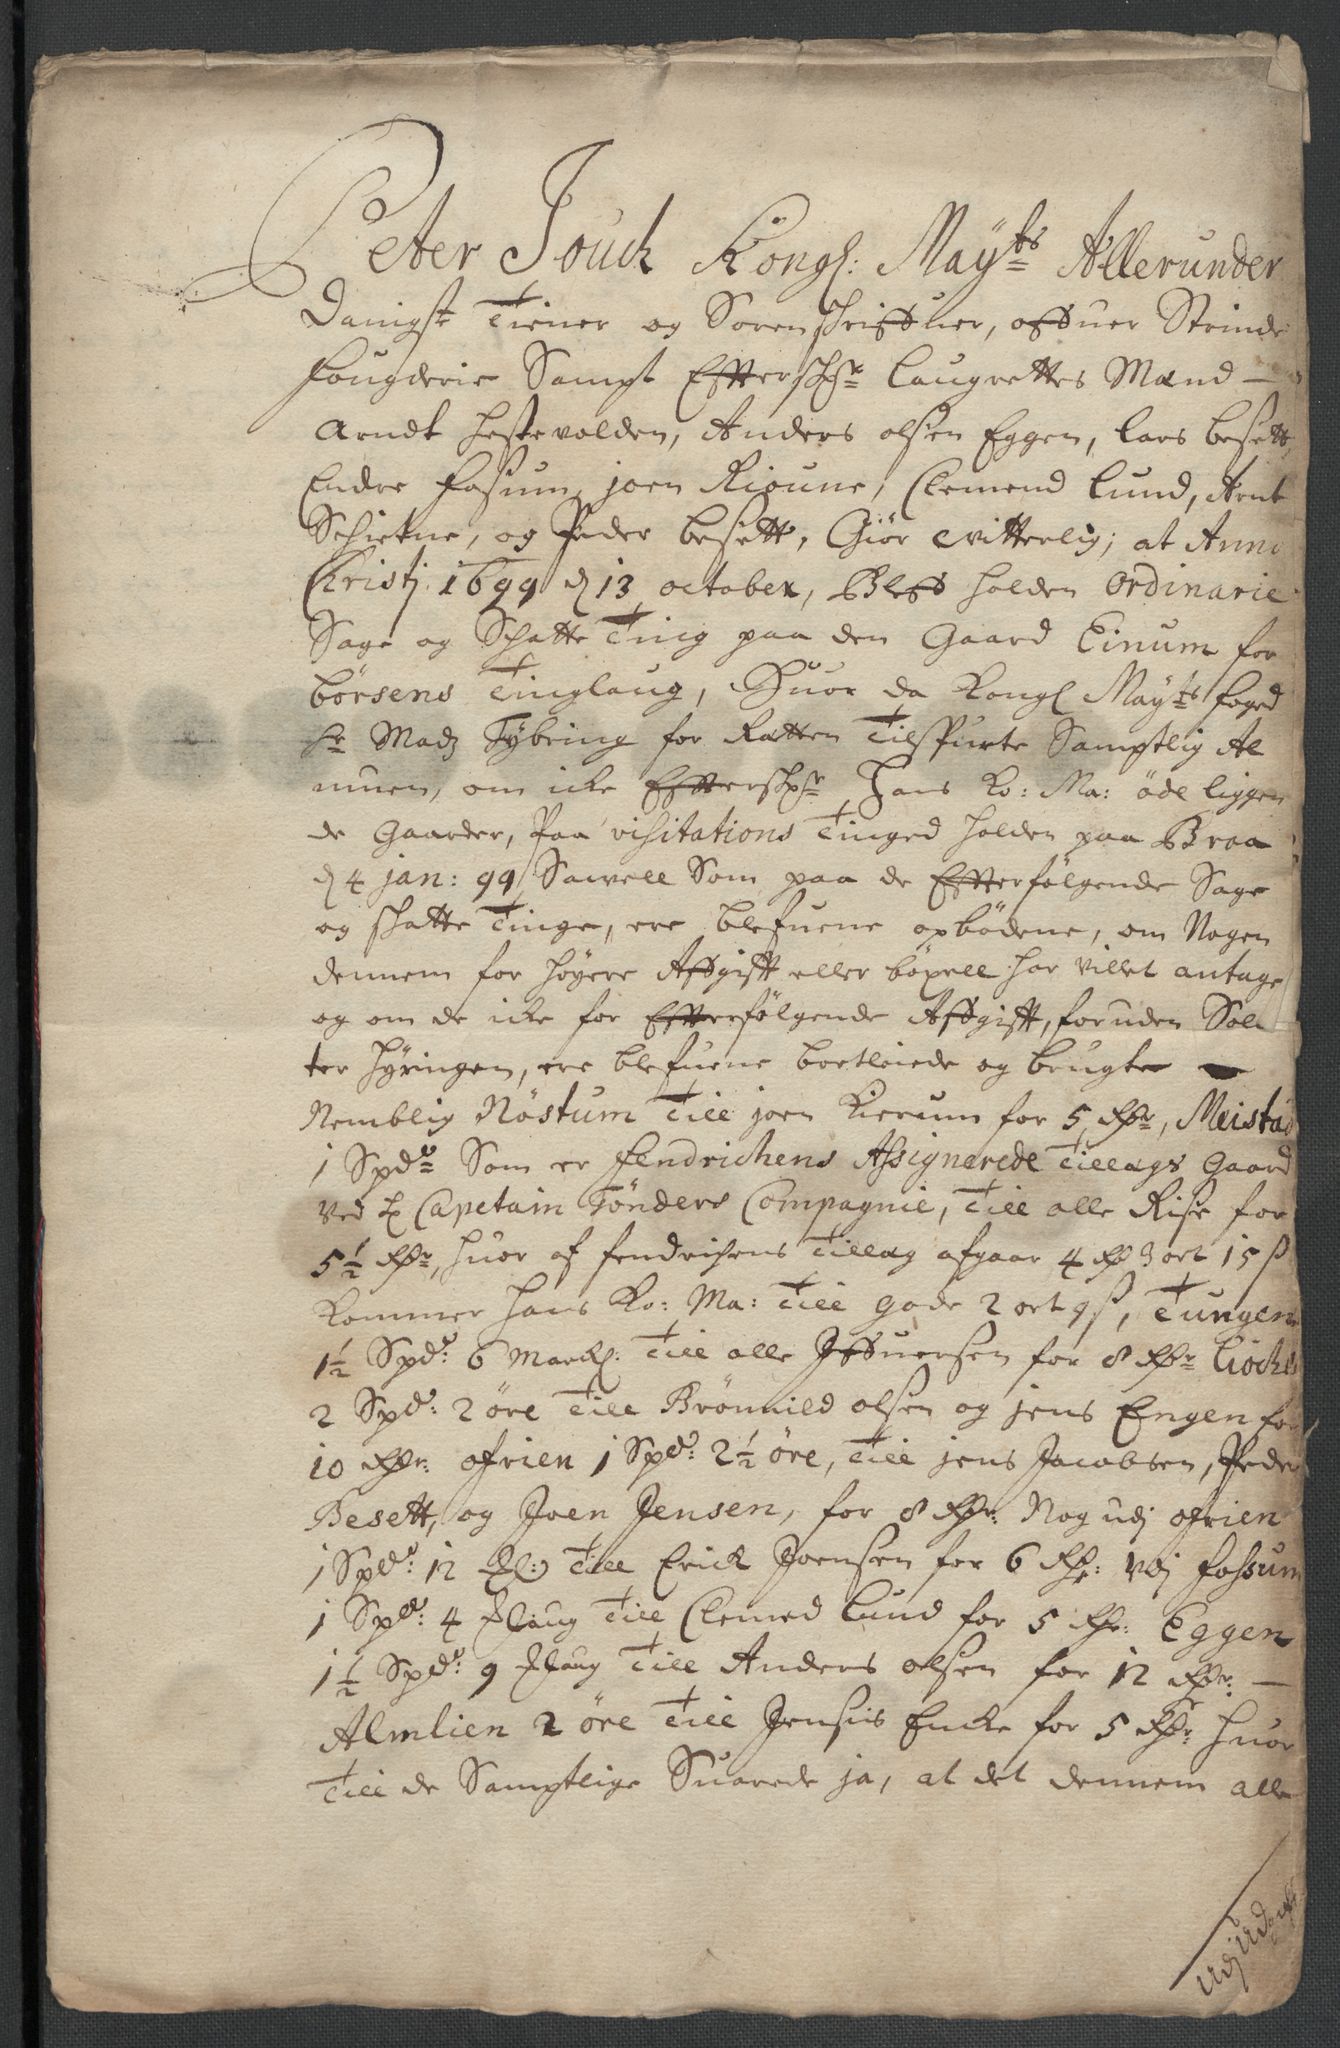 Peter Jouch Kongl: Mayts Allerunder
Danigste Tiener og Sorenschriffuer, offuer Strinde
fougderie Sampt Effterschr: Laugrettes Mænd —
Arndt hestevolden, Anders olsen Eggen, Lars besett,
Endre fosum, joen Rioune, Clemend Lund, Arnt
Schietne, og Peder besett, Giør Witterlig; at Anno
Christj 1699 d 13 october, Bleff holden Ordinarie
Sage og Schatte Ting paa den Gaard Einum for
børsens Tinglaug, Huor da Kongl Mayts foged
Sr Madz Tybring for Retten Tilspurte Samptlig Al
muen, om icke Efferschr: Hans Ko: Ma: øde liggen
de Gaarder, Paa visitations Tinged holden paa Braa
d 4 jan: 99 Sawell Som paa de Effterfølgende Sage
og schatte Tinge, ere blefuene opbødene, om Nogen
dennem for høyere Affgifft eller bøxell har villet antage
og om de icke for Effterfølgende Affgifft, foruden Sol
ter hyringen, ere blefuene bortleiede og brugte —
Nemblig Nøstum Till joen Kierum for 5 Rdr, Meistad
1 Spd Som er fendrichens Assignerede Tillags Gaard
ved Capetain Tønders Compagnie, Till alle Rise for
5½ Rdr, huor af fendrichens Tillag afgaar 4 Rd 3 ort 15 ß
Kommer hans Ko: Ma: Till gode 2 ort 9 ß, Tungen
1½ Spd: 6 Markl: Till alle Iffuersen for 8 Rdr
2 Spd: 2 øre Till Brønnild olsen og jens Engen for
10 Rdr: ofrien 1 Spd: 2½ øre, Till jens Jacobsen, Peder
Besett, og Joen Jensen, for 8 Rdr: Nog udj ofrien
1 Spd: 12 Till Erick Joensen for 6 Rdr: Vdj fossum
1 Spd: 4 Till Clemed Lund for 5 Rdr: Eggen
1½ Spd: 9 Till Anders olsen for 12 Rdr: —
Almlien 2 øre Till Jensiis Encke for 5 Rdr huor
Till de Samptlige Suarede ja, at det dennem alle